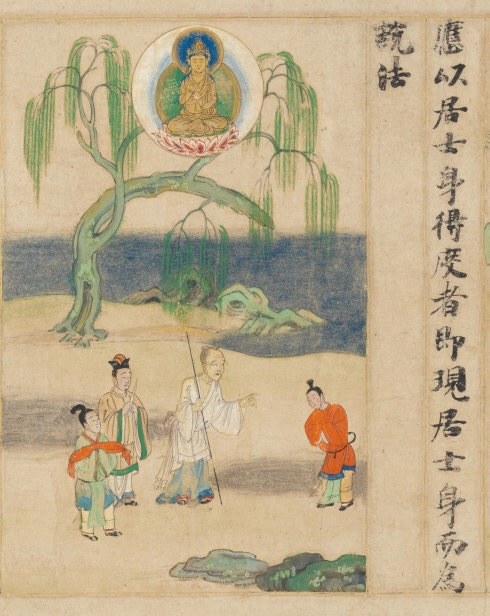 應以居士身得度者即現居士身而為
説法